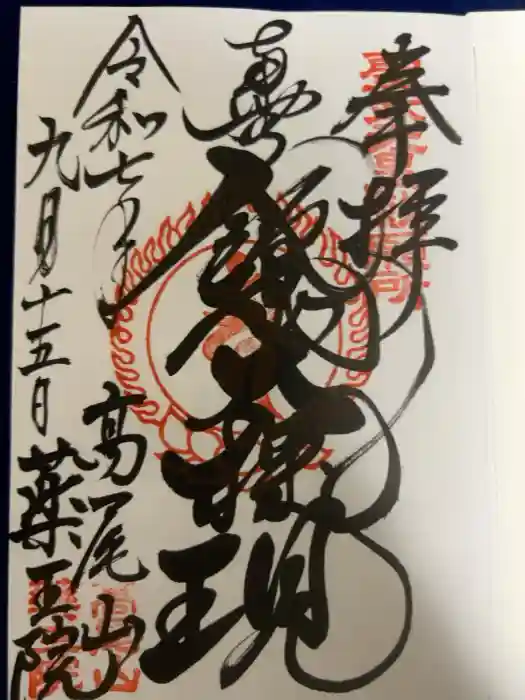 奉拝
飯縄大権現
令和七年
九月十五日
高尾山
薬王院